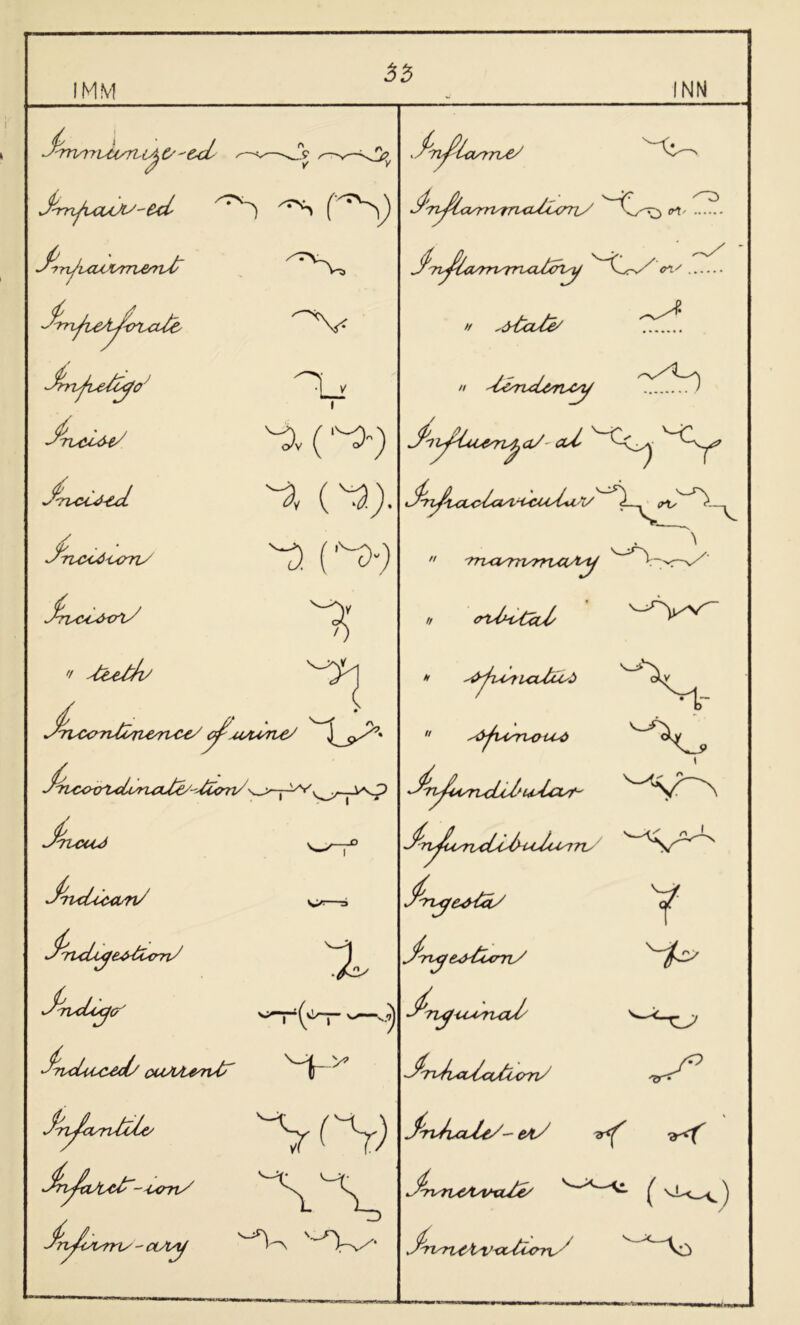 33
IMM
INN
Immunize-ed
Impair-ed
Impairment
Imperforate
Impetigo
Incise
Incised
Incision
Incisor
" teeth
Incontinence of urine
Incoordinate-tion
Incus
Indican
Indigestion
Indigo
Induced current
Infantile
Infarct-ion
Infirm-ary
Inflame
Inflammation or ......
Inflammatory or ......
" state
" tendency
Influenza-al
Infraclavicular or
" mammary
" orbital
" spinatus
" spinous
Infundibular
Infundibulum
Ingesta
Ingestion
Inguinal
Inhalation
Inhale-er
Innervate
Innervation